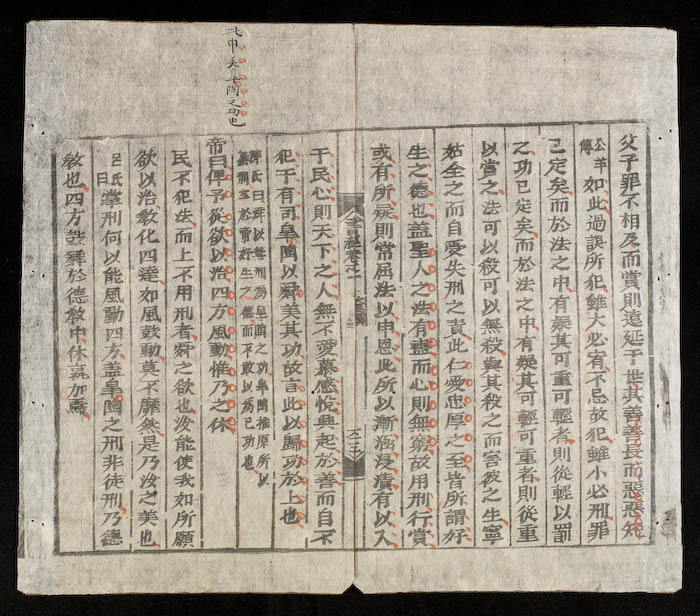 此申矢皐陶之功也
父子罪不相及而賞則遠延于世其善善長而惡惡短
公羊傳
如此過誤所犯雖大必宥不忌故犯雖小必刑罪
已定矣而於法之中有疑其可重可輕者則從輕以罰
之功已定矣而於法之中有疑其可輕可重者則從重
以賞之法可以殺可以無殺與其殺之而害彼之生寧
姑全之而自受失刑之責此仁愛忠厚之至皆所謂好
生之德也盖聖人之法有盡而心則無窮故用刑行賞
或有所疑則常屈法以申恩此所以漸涵浸漬有以入
于民心則天下之人無不愛慕感悅興起於善而自不
犯于有司皐陶以舜美其功故言此以歸功於上也
陳氏曰舜以無刑爲皐陶之功皐陶推原所以
無刑本於帝好生之德而不敢以爲己功也
帝曰俾予從欲以治四方風動惟乃之休
民不犯法而上不用刑者舜之欲也汝能使我如所願
欲以治教化四達如風鼓動莫不靡然是乃汝之美也
呂氏曰
掌刑何以能風動四方盖皐陶之刑非徒刑乃德
教也四方鼓舞於德教中休孰加焉